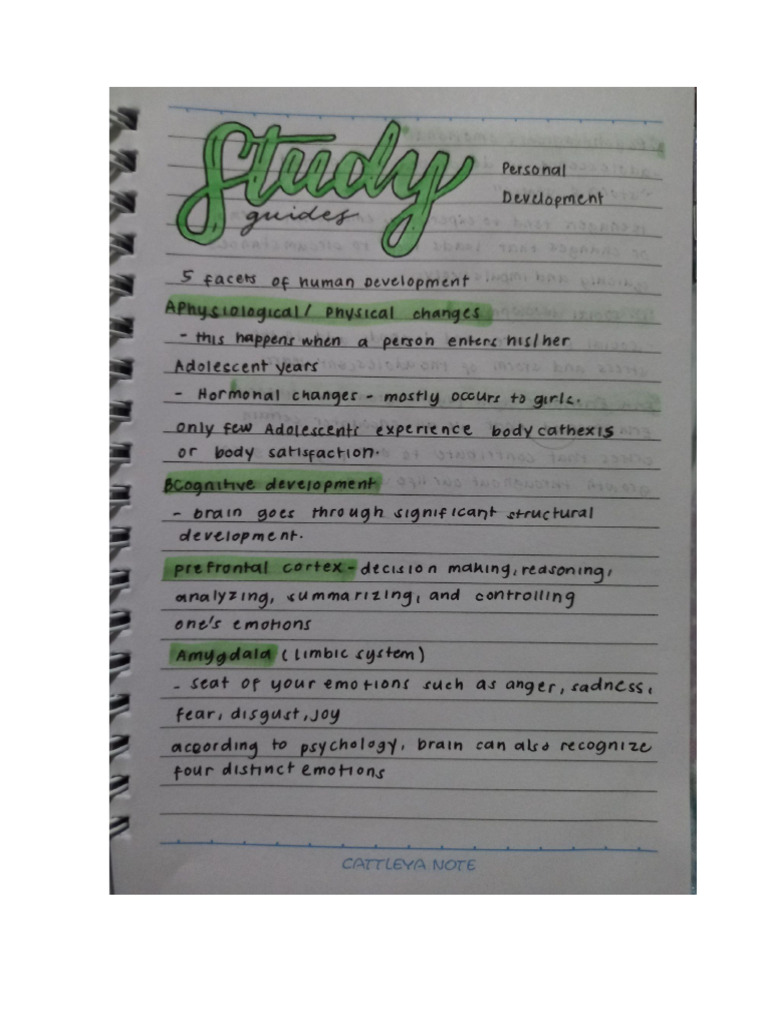 Study
guides
Personal
Development
5 facets of human Development
A Physiological / Physical changes
- this happens when a person enters his/her
Adolescent years
- Hormonal changes - mostly occurs to girls.
only few Adolescents experience body cathexis
or body satisfaction.
B Cognitive development
- brain goes through significant structural
development.
prefrontal cortex - decision making, reasoning,
analyzing, summarizing, and controlling
one's emotions
Amygdala (limbic system)
- seat of your emotions such as anger, sadness,
fear, disgust, joy
according to psychology, brain can also recognize
four distinct emotions
CATTLEYA NOTE